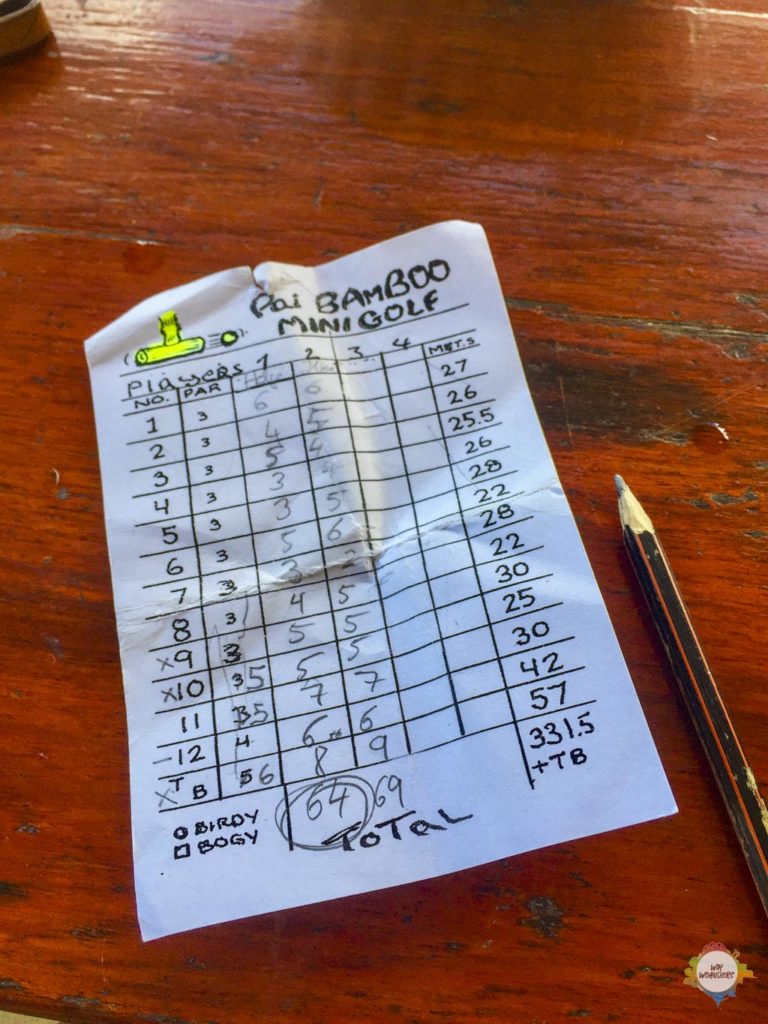 Pai BAMBOO
MINIGOLF
Players 1 2 3 4 MET.S
NO. PAR
1 3 6 6 27
2 3 4 5 26
3 3 5 4 25.5
4 3 3 26
5 3 3 5 28
6 3 5 6 22
7 3 3 28
8 3 4 5 22
x9 3 5 5 30
x10 3 5 5 5 25
11 3 5 7 7 30
-12 4 6 6 42
x TB 5 6 8 9 57
64 69 331.5
+TB
O BIRDY
□ BOGY
ToTaL